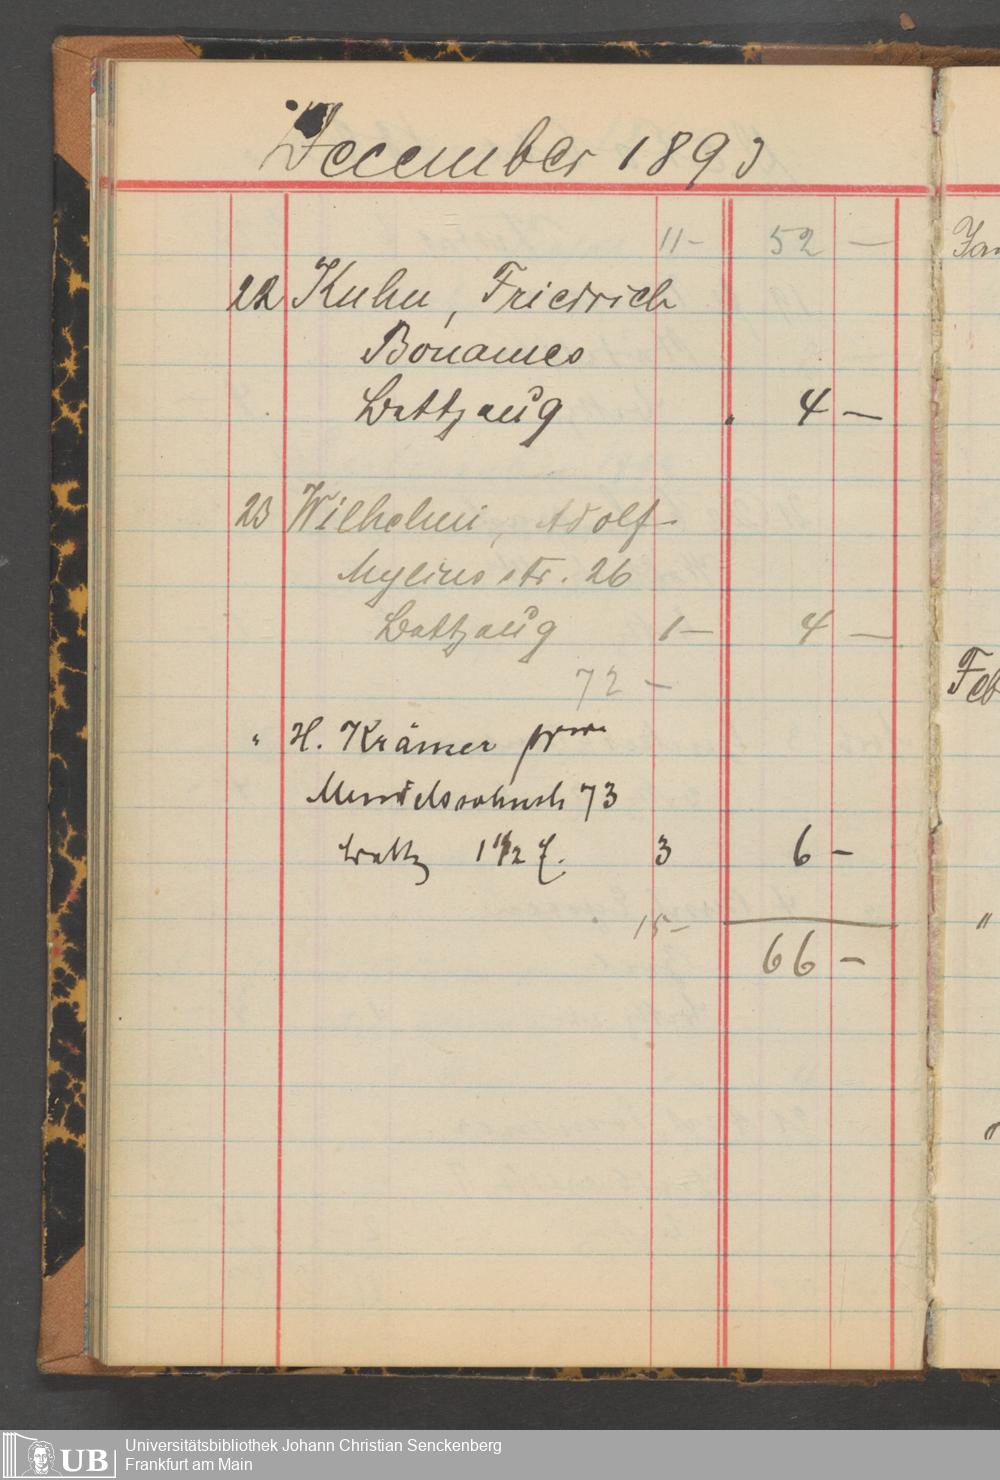 December 1893
11 — 52 —
22 Kuhn, Friedrich
Bonames
4 —
23 Wilhelmi, Adolf
Myliusstr. 26
1 — 4 —
72 —
" H. Krämer
73
1 1/2 3 6 —
15 —
66 —
Feb
"
UB
Universitätsbibliothek Johann Christian Senckenberg
Frankfurt am Main